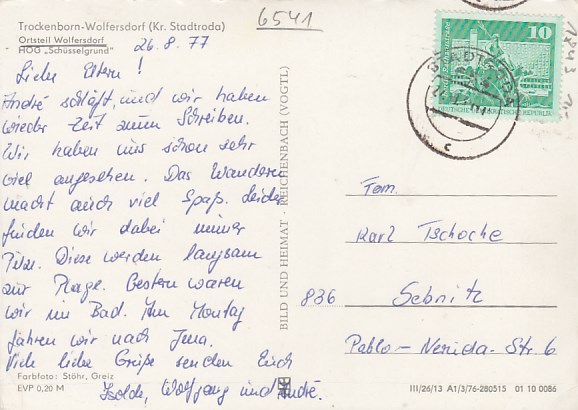 Trockenborn-Wolfersdorf (Kr. Stadtroda)
Ortsteil Wolfersdorf
HOG „Schüsselgrund"
6541
26.8.77
Liebe Eltern!
André schläft, und wir haben
wieder Zeit zum Schreiben.
Wir haben uns schon sehr
viel angesehen. Das Wandern
macht auch viel Spaß. Leider
finden wir dabei immer
Pilze. Diese werden langsam
zur Plage. Gestern waren
wir im Bad. Am Montag
fahren wir nach Jena.
Viele liebe Grüße senden Euch
Isolde, Wolfgang und André.
Farbfoto: Stöhr, Greiz
EVP 0,20 M
BILD UND HEIMAT · REICHENBACH (VOGTL)
10
DEUTSCHE DEMOKRATISCHE REPUBLIK
STADTRODA
c
Fam.
Karl Tschoche
836 Sebnitz
Pablo-Neruda-Str 6
III/26/13 A1/3/76-280515 01 10 0086